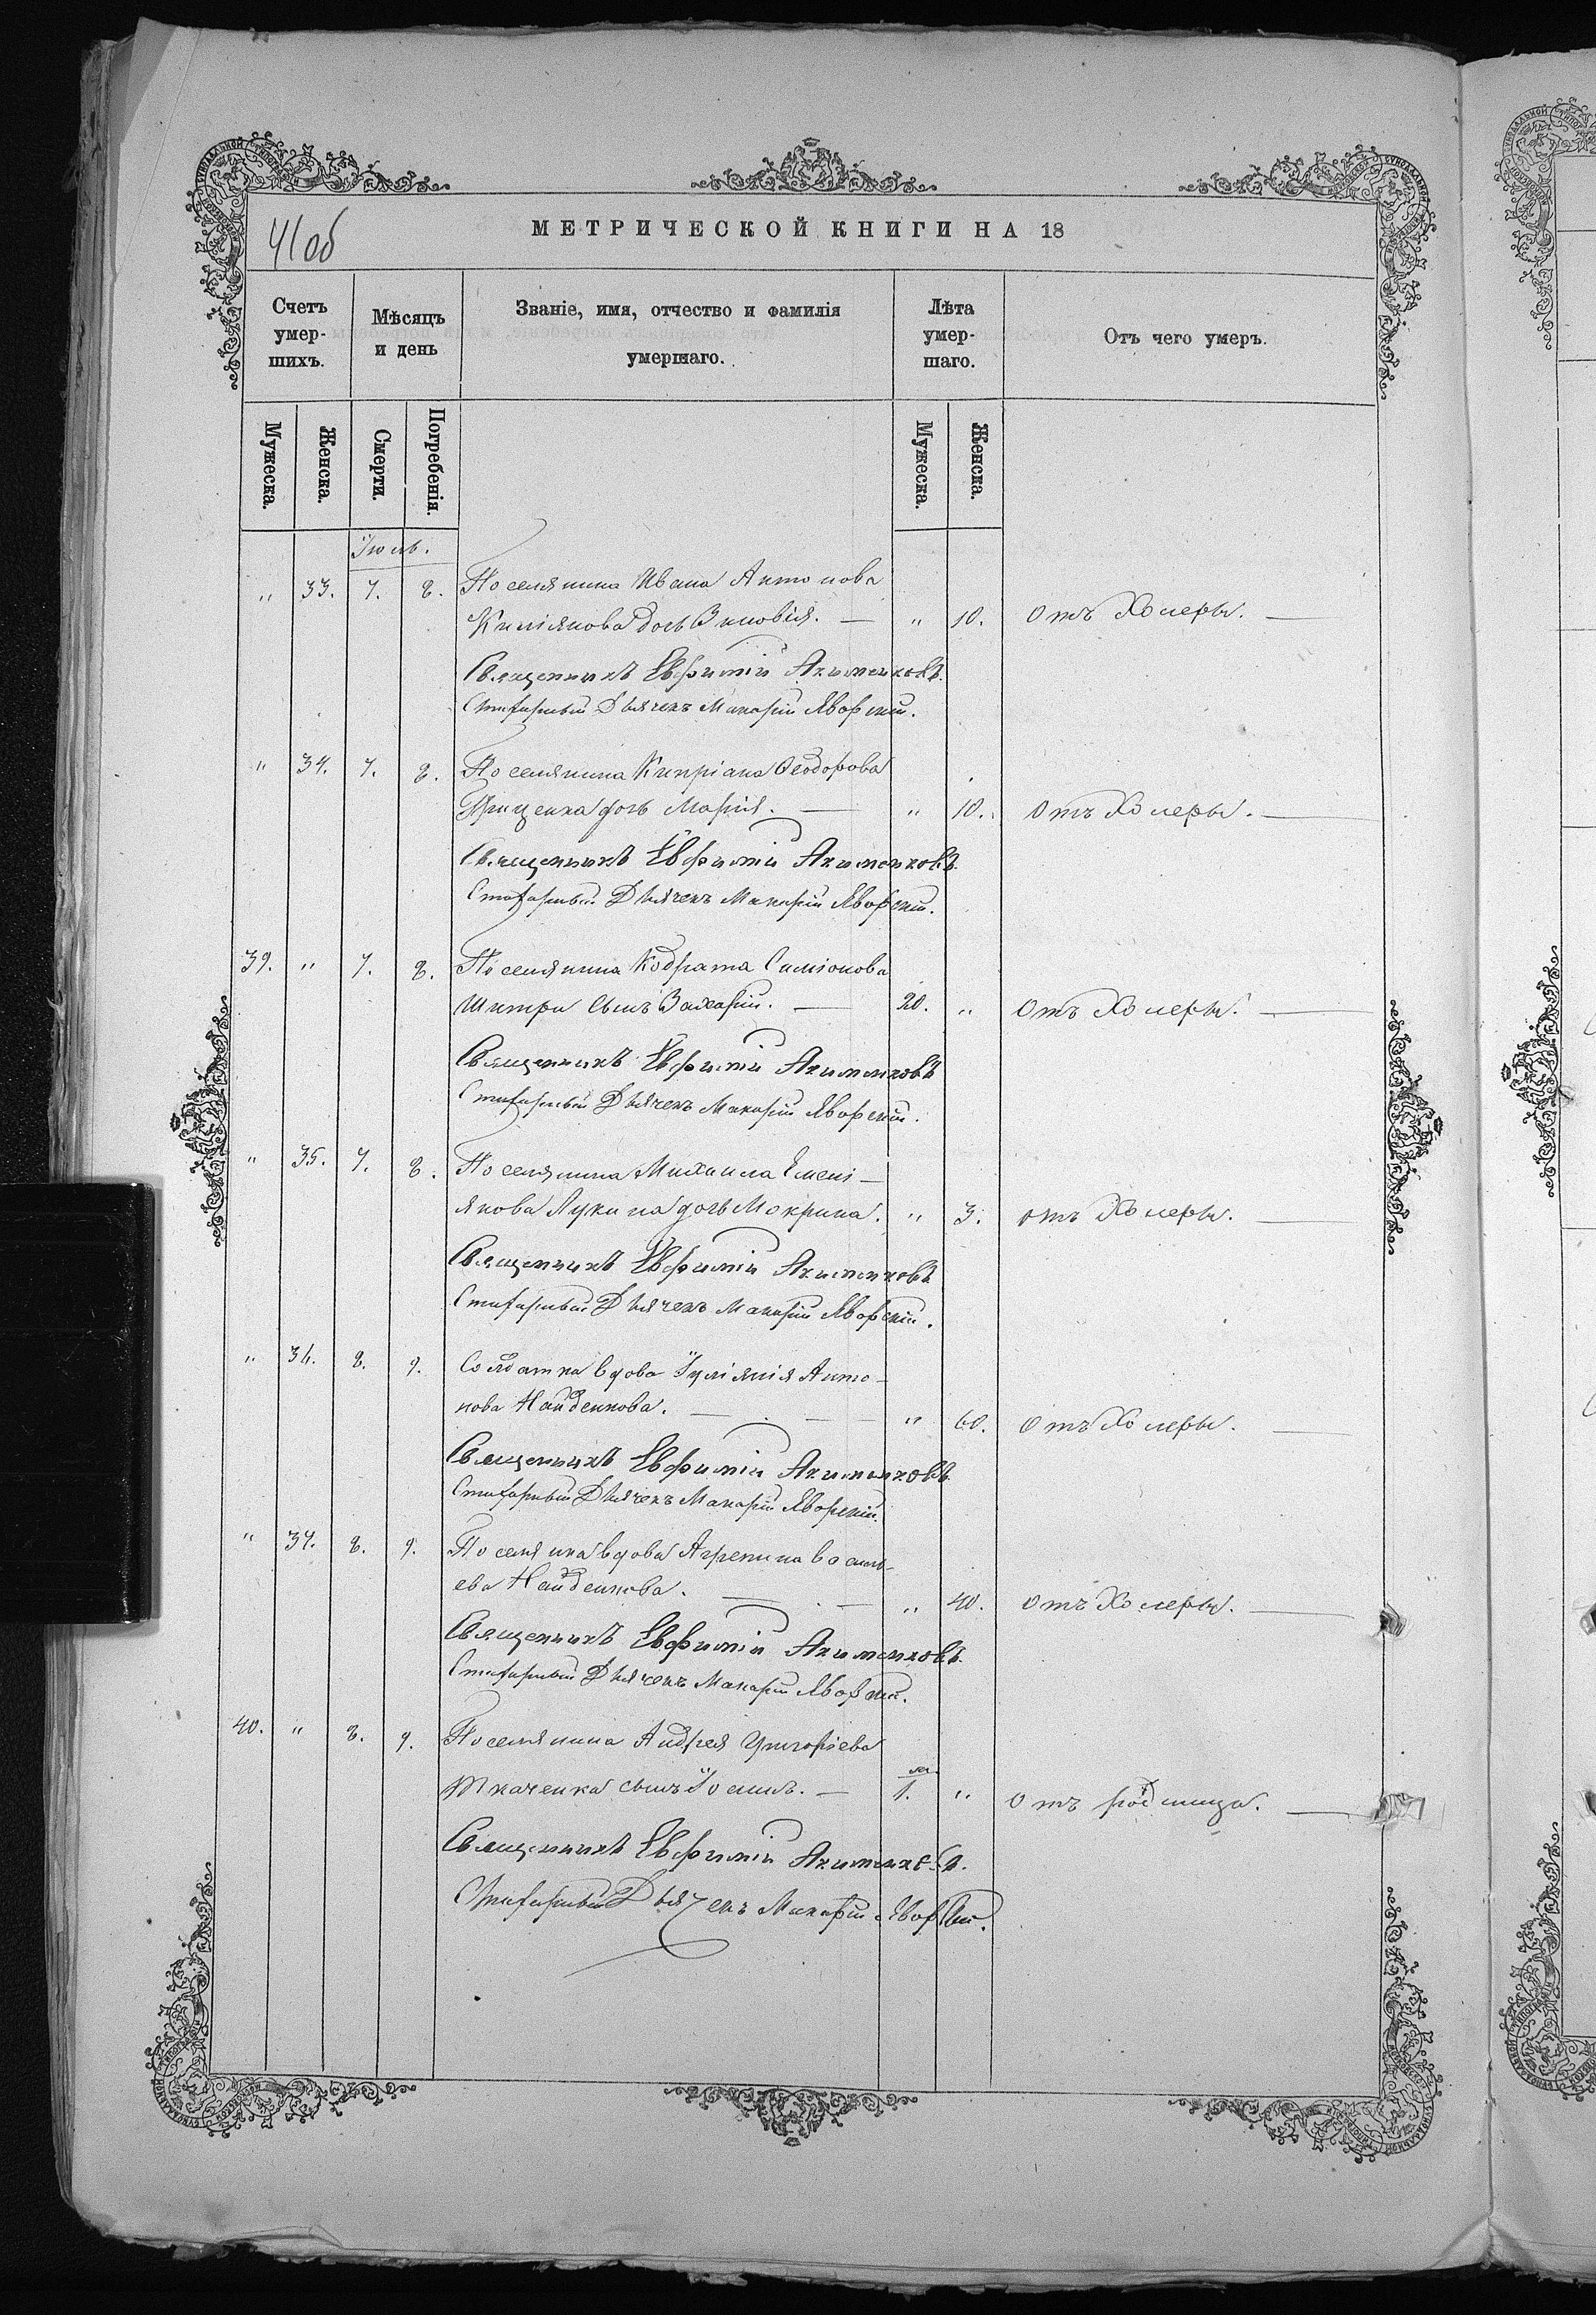 41об
МЕТРИЧЕСКОЙ КНИГИ НА 18
Счетъ умер-шихъ.
Мѣсяцъ и день
Званіе, имя, отчество и фамилія умершаго.
Лѣта умер-шаго.
Отъ чего умеръ.
Мужеска.
Женска.
Смерти.
Погребенія.
Мужеска.
Женска.
Іюль.
" 33. 7. 8. Поселянина Ивана Антонова
Киліянова дочь Зиновія. — " 10. Отъ Холеры. —
Священникъ Евфимій Акименковъ.
Стихарный Дьячекъ Макарій Яворскій.
" 34. 7. 8. Поселянина Кипріана Ѳеодорова
Грищенка дочь Марія. — " 10. Отъ Холеры. —
Священникъ Евфимій Акименковъ.
Стихарный Дьячекъ Макарій Яворскій.
39. " 7. 8. Поселянина Кодрата Симіонова
сынъ Захарій. — 20. " Отъ Холеры. —
Священникъ Евфимій Акименковъ
Стихарный Дьячекъ Макарій Яворскій.
" 35. 7. 8. Поселянина Михаила Емелі-
янова Лукина дочь Мокрина. " 3. отъ Холеры. —
Священникъ Евфимій Акименковъ
Стихарный Дьячекъ Макарій Яворскій.
" 36. 8. 9. Солдатка вдова Іуліянія Анто-
нова Найденкова. — " 60. Отъ Холеры. —
Священникъ Евфимій Акименковъ.
Стихарный Дьячекъ Макарій Яворскій.
" 37. 8. 9. Поселянка вдова Агрепина Василь-
ева Найденкова. — " 40. Отъ Холеры. —
Священникъ Евфимій Акименковъ.
Стихарный Дьячекъ Макарій Яворскій.
40. " 8. 9. Поселянина Андрея Григоріева
Ткаченка сынъ Іосифъ. — 1. " Отъ родимца. —
Священникъ Евфимій Акименковъ.
Стихарный Дьячекъ Макарій Яворскій.